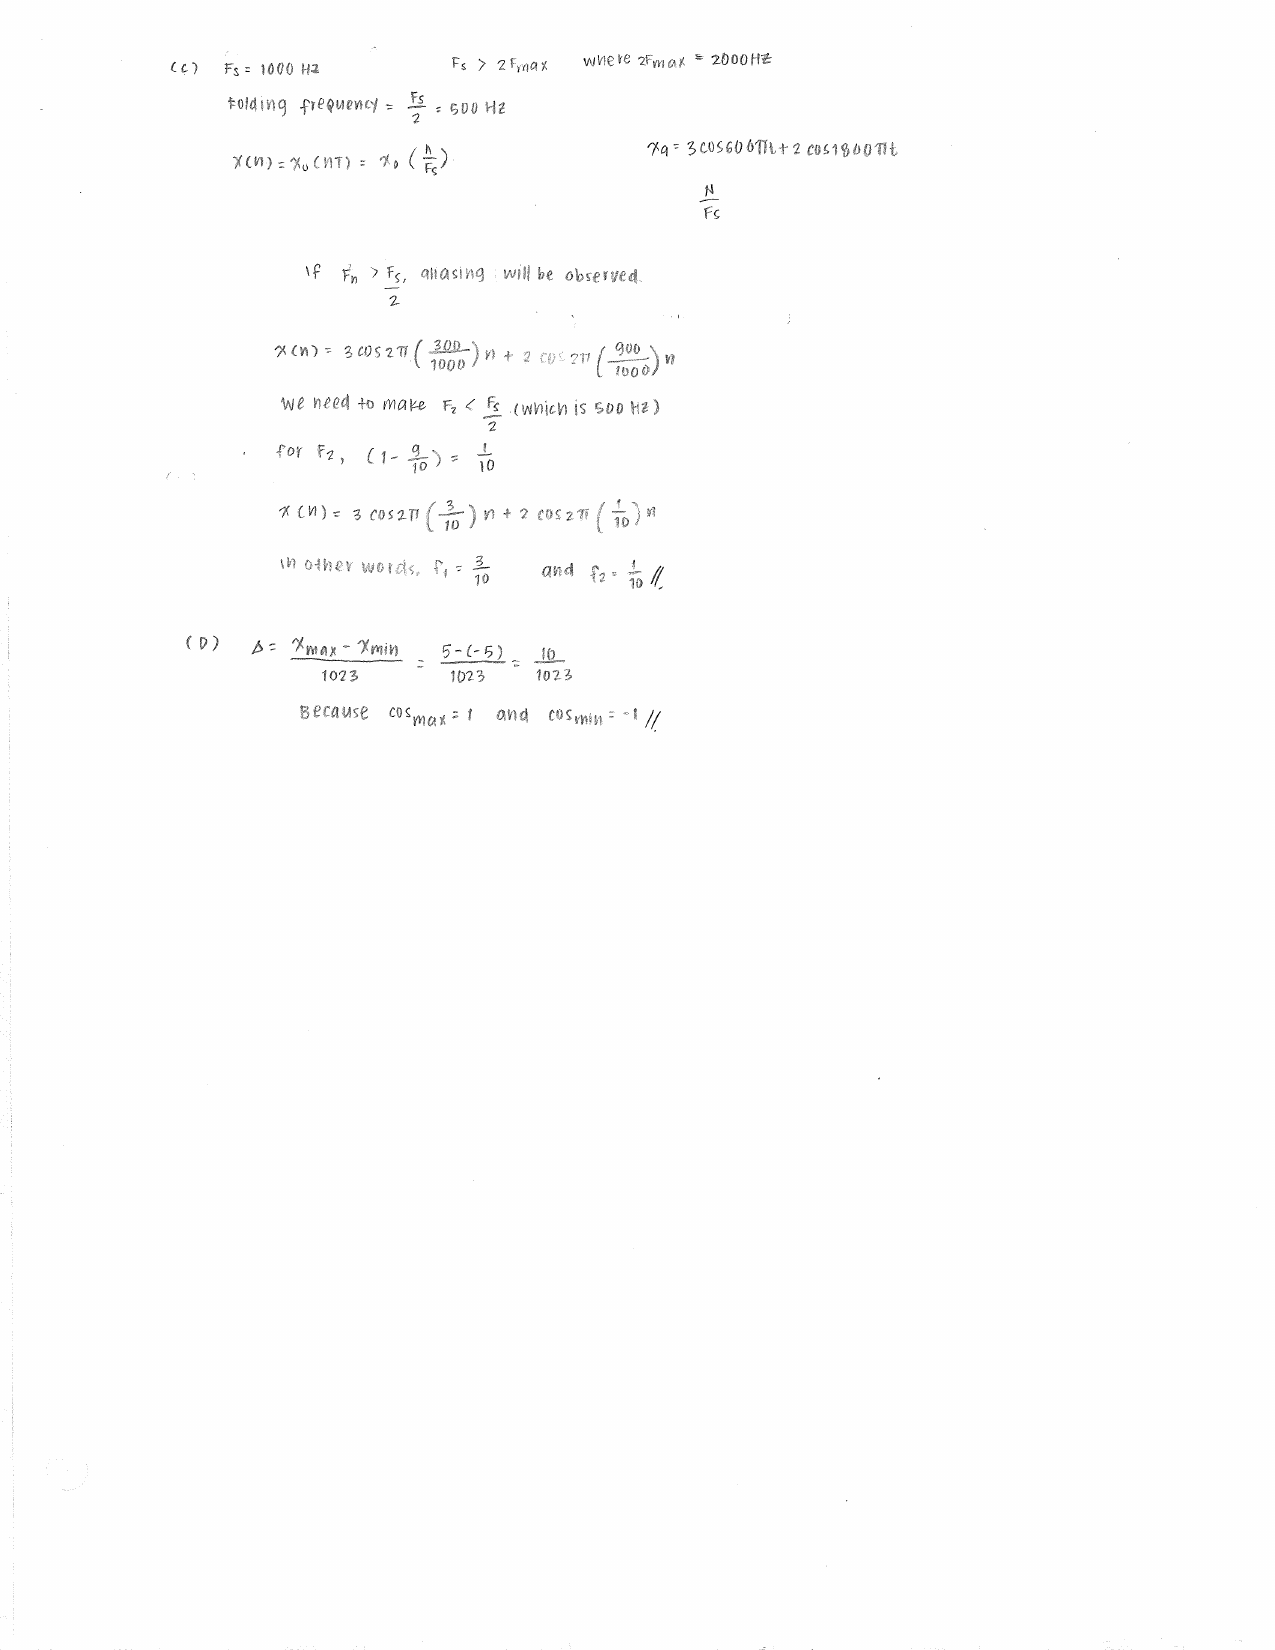 (C) Fs = 1000 Hz Fs > 2Fmax where 2Fmax = 2000Hz
Folding frequency = Fs/2 = 500 Hz
x(n) = xa(nT) = xa(n/Fs) xa = 3cos600πt + 2cos1800πt
N/Fs
If Fn > Fs/2, aliasing will be observed.
x(n) = 3cos2π(300/1000)n + 2cos2π(900/1000)n
We need to make F2 < Fs/2 (which is 500 Hz)
for F2, (1 - 9/10) = 1/10
x(n) = 3cos2π(3/10)n + 2cos2π(1/10)n
In other words, f1 = 3/10 and f2 = 1/10 //
(D) Δ = xmax - xmin / 1023 = 5-(-5) / 1023 = 10/1023
Because cosmax = 1 and cosmin = -1 //